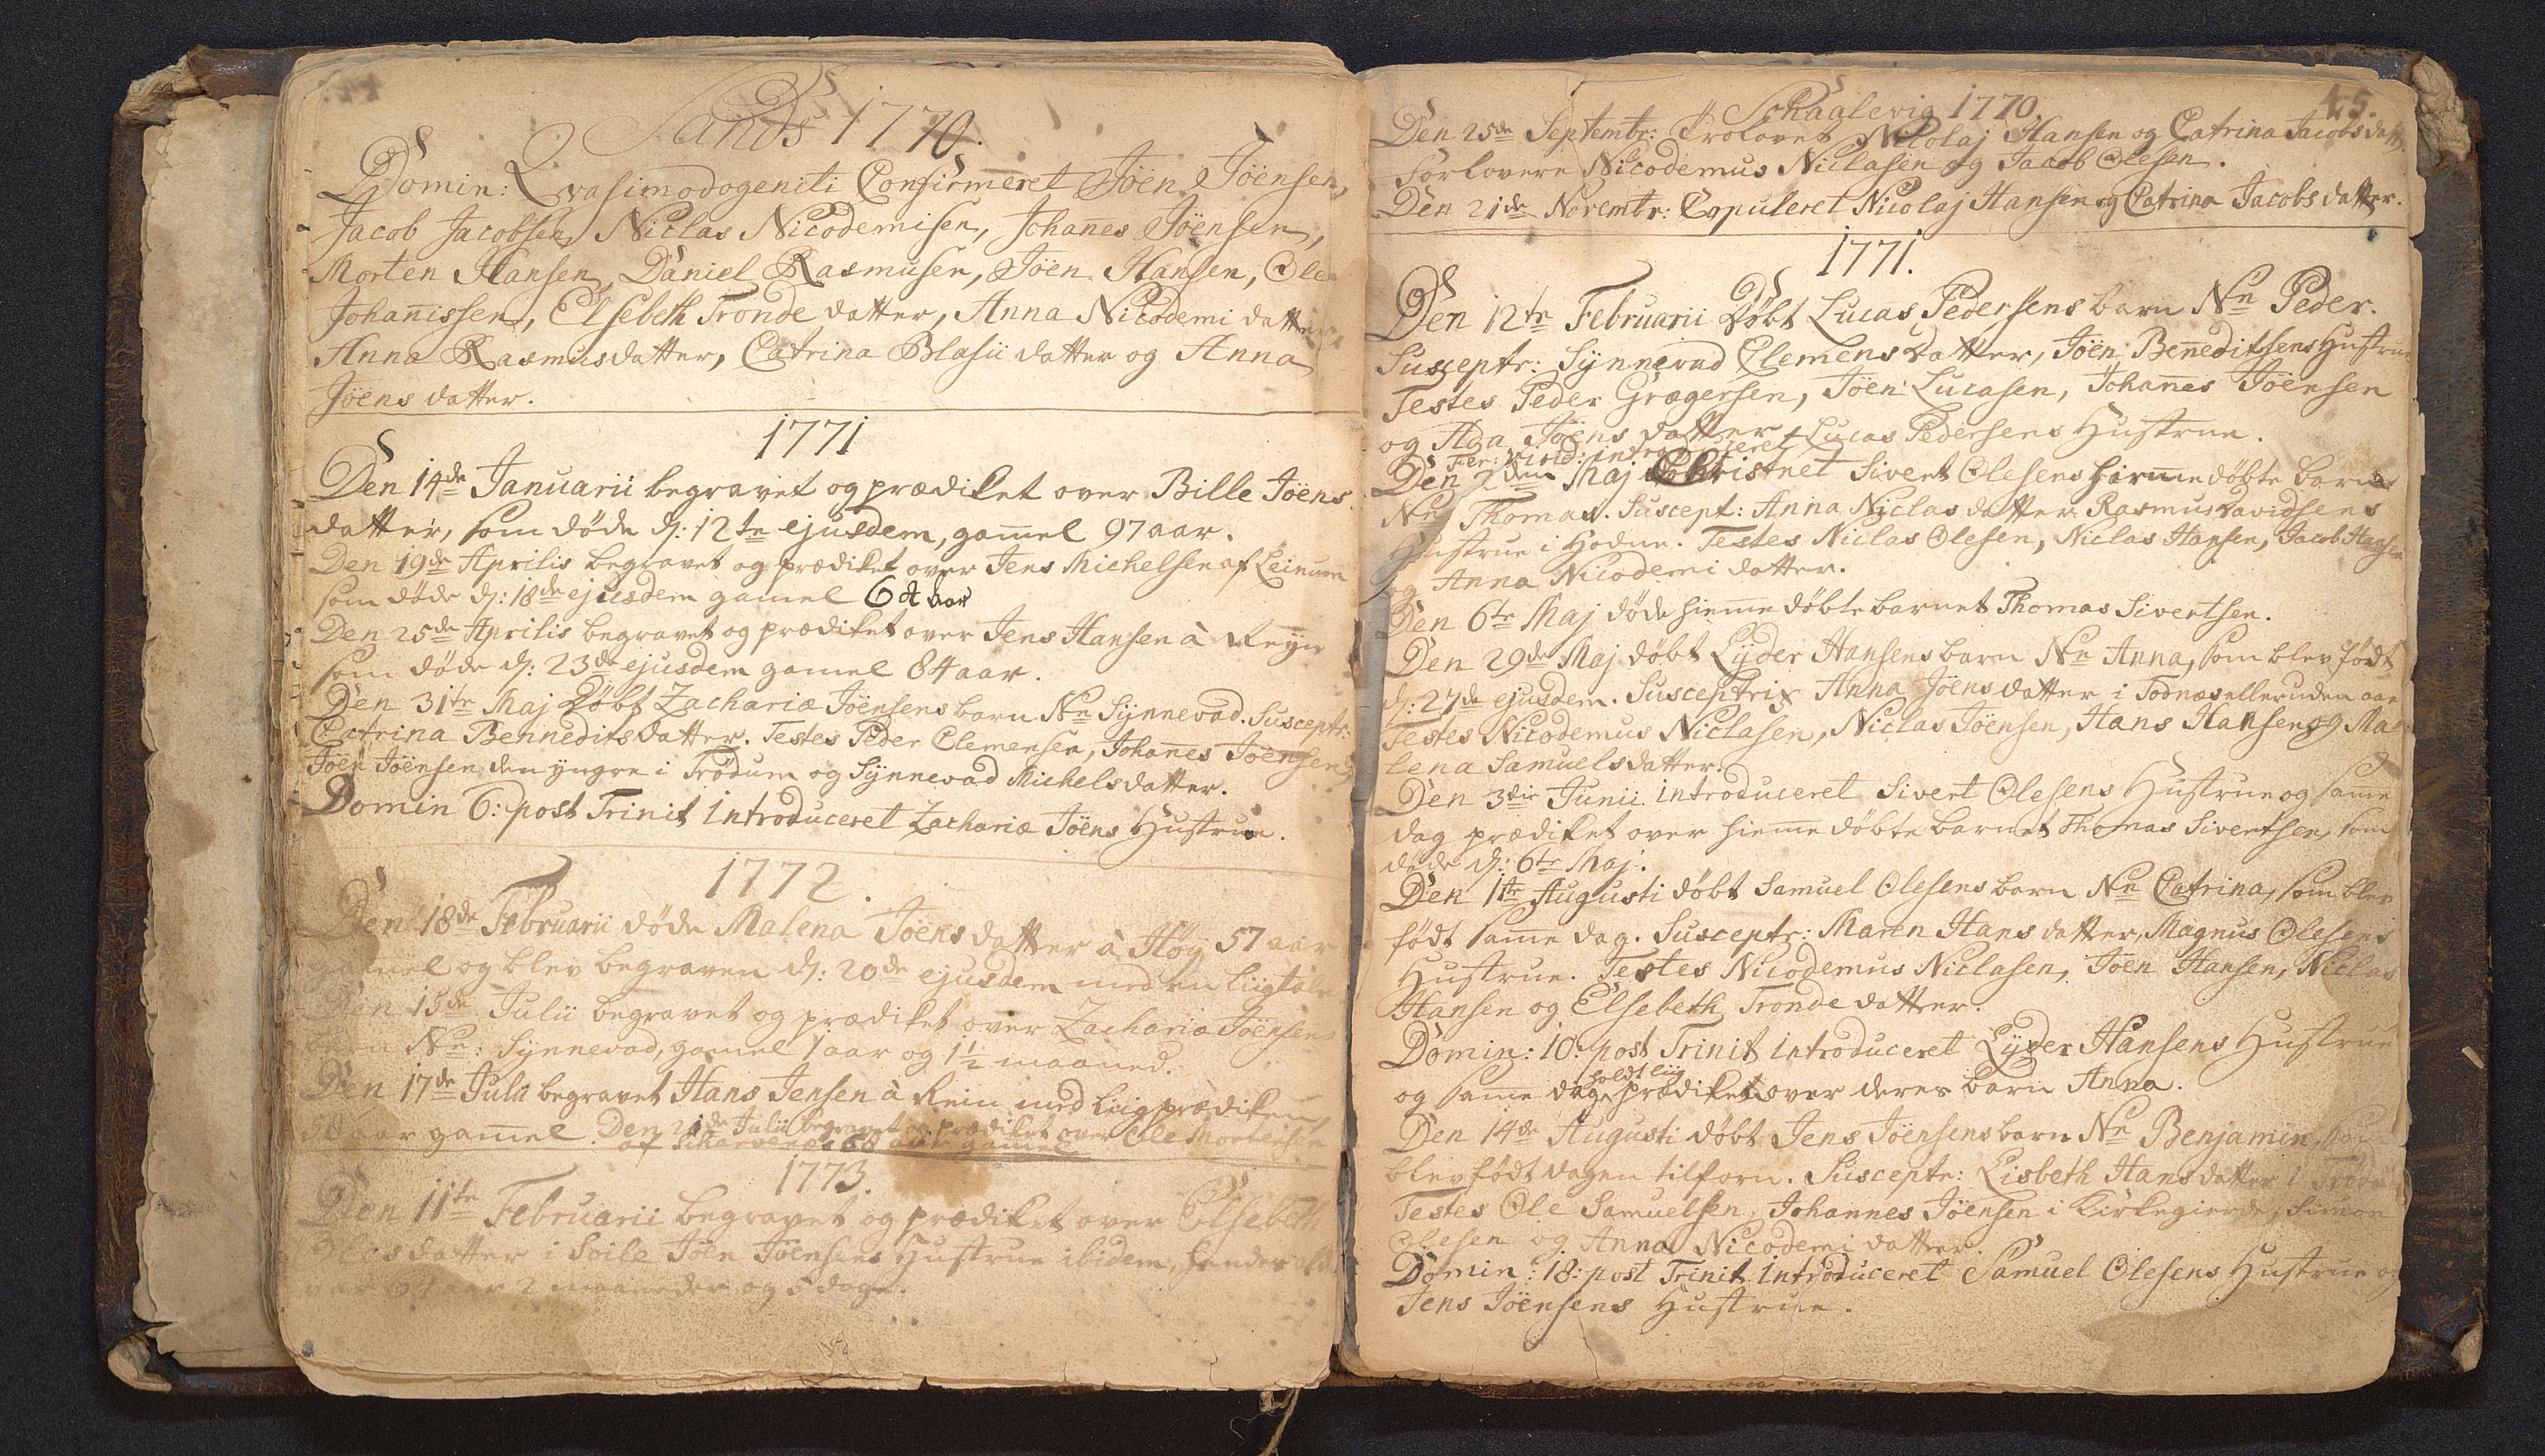 Sands 1770.
Domin: Qvasimodogeniti Confirmeret Jöen Jöensen,
Jacob Jacobsen, Niclas Nicodemisen, Johanes Jöensen,
Morten Hansen, Daniel Rasmusen, Jöen Hansen, Ole
Johanissen, Elsebeth Tronde datter, Anna Nicodemi datter
Anna Rasmusdatter, Catrina Blasii datter og Anna
Jöens datter.
1771
Den 14de Januarii begravet og prædiket over Bille Jöens
datter, som døde d: 12te ejusdem, gamel 97 aar.
Den 19de Aprilis begravet og prædiket over Jens Michelsen af Leinum
som døde d: 18de ejusdem gamel 64 aar
Den 25de Aprilis begravet og prædiket over Jens Hansen à Reyn
som døde d: 23de ejusdem gamel 84 aar.
Den 31te Maj døbt Zachariæ Jöensens barn Nn Synnevad. Susceptr:
Catrina Benneditsdatter. Testes Peder Clemensen, Johanes Jöensen
Jöen Jöensen den yngre i Trödum og Synnevad Michelsdatter.
Domin 6: post Trinit Introduceret Zachariæ Jöens Hustrue.
1772.
Den 18de Februarii døde Malena Jöens datter à Høg 57 aar
gamel og blev begraven d: 20de ejusdem med en liigtale
Den 15de Julii begravet og prædiket over Zachariæ Jöensens
barn Nn: Synnevad, gamel 1 aar og 1½ maaned.
Den 17de Julii begravet Hans Jensen à Rein med liigprædiken,
58 aar gamel. Den 21de Julii begravet og prædiket over Ole Mortensen
af 68 aar gamel
1773.
Den 11te Februarii begravet og prædiket over Elsebeth
Olesdatter i Soile Jöen Jöensens Hustrue ibidem, hendes
2 maaneder og 5 dage.
Schaalevig 1770.
45.
Den 25de Septembr: Trolovet Nicolaj Hansen og Catrina Jacobsdatt
Forlovere Nicodemus Niclasen og Jacob Olesen.
Den 21de Novembr: Copuleret Nicolaj Hansen og Catrina Jacobs datter.
1771.
Den 12te Februarii Döbt Lucas Pedersens barn Nn Peder.
Susceptr: Synnevad Clemens datter, Jöen Benneditsens Hustrue
Testes Peder Grægersen, Jöen Lucasen, Johanes Jöensen
og Ada Jöens datter
introduceret Lucas Pedersens Hustrue.
Den 2den Maj Christnet Sivert Olesens hiemmedøbte barn
Nn Thomas. Suscept: Anna Niclas datter Rasmus Davidsens
Hustrue i Hodne. Testes Niclas Olesen, Niclas Hansen, Jacob Hansen
og Anna Nicodemi datter.
Den 6te Maj døde hiemmedøbte barnet Thomas Sivertsen.
Den 29de Maj døbt Lyder Hansens barn Nn Anna, som blev født
d: 27de ejusdem. Susceptrix Anna Jöens datter i Todnæs
Testes Nicodemus Niclasen, Niclas Jöensen, Hans Hansen og Ma
lena Samuels datter.
Den 3die Junii introduceret Sivert Olesens Hustrue og same
dag prædiket over hiemmedøbte barnet Thomas Sivertsen, som
døde d: 6te Maj.
Den 1te Augusti døbt Samuel Olesens barn Nn Catrina, som blev
født same dag. Susceptr: Maren Hans datter, Magnus Olesens
Hustrue. Testes Nicodemus Niclasen, Jöen Hansen, Niclas
Hansen og Elsebeth Tronde datter.
Domin: 10: post Trinit Introduceret Lyder Hansens Hustrue
og same dag holdt liigprædiken over deres barn Anna.
Den 14de Augusti døbt Jens Jöensens barn Nn Benjamin, som
blev født dagen tilforn. Susceptr: Lisbeth Hans datter i Trödum
Testes Ole Samuelsen, Johannes Jöensen i Kirkegierde, Simon
Olesen og Anna Nicodemi datter.
Domin: 18: post Trinit Introduceret Samuel Olesens Hustrue og
Jens Jöensens Hustrue.